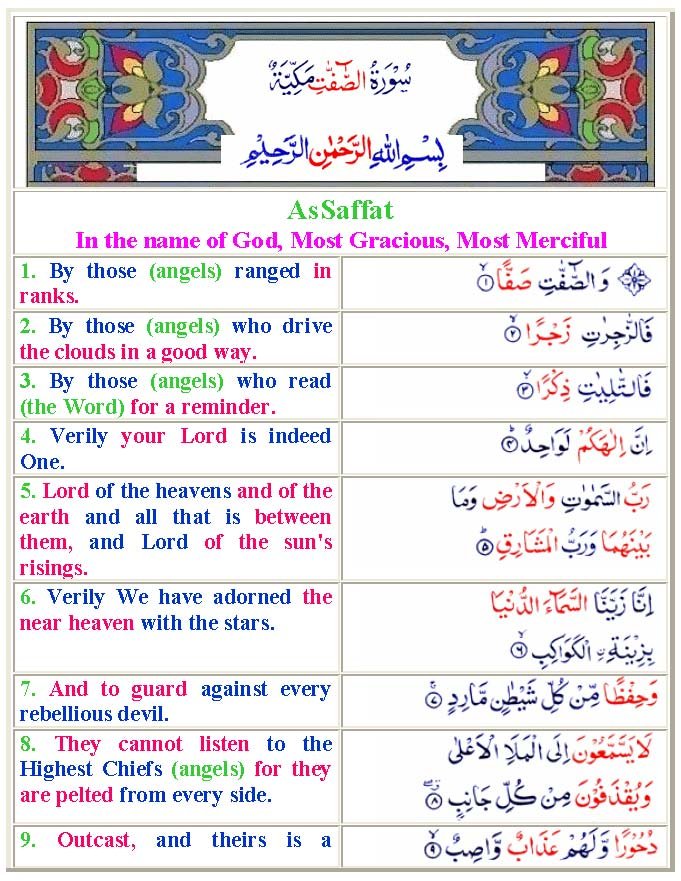 سُوْرَةُ الصّٰٓفّٰتِ مَكِّيَّةٌ
بِسْمِ اللّٰهِ الرَّحْمٰنِ الرَّحِيْمِ
AsSaffat
In the name of God, Most Gracious, Most Merciful
1. By those (angels) ranged in
ranks.
وَالصّٰٓفّٰتِ صَفًّا ۙ‏﴿۱﴾
2. By those (angels) who drive
the clouds in a good way.
فَالزّٰجِرٰتِ زَجْرًا ۙ‏﴿۲﴾
3. By those (angels) who read
(the Word) for a reminder.
فَالتّٰلِيٰتِ ذِكْرًا ۙ‏﴿۳﴾
4. Verily your Lord is indeed
One.
اِنَّ اِلٰهَكُمْ لَوَاحِدٌ ؕ‏﴿۴﴾
5. Lord of the heavens and of the
earth and all that is between
them, and Lord of the sun's
risings.
رَبُّ السَّمٰوٰتِ وَالْاَرْضِ وَمَا
بَيْنَهُمَا وَرَبُّ الْمَشَارِقِ ؕ‏﴿۵﴾
6. Verily We have adorned the
near heaven with the stars.
اِنَّا زَيَّنَّا السَّمَآءَ الدُّنْيَا
بِزِيْنَةِ ۨ الْكَوَاكِبِ ۙ‏﴿۶﴾
7. And to guard against every
rebellious devil.
وَحِفْظًا مِّنْ كُلِّ شَيْطٰنٍ مَّارِدٍ ۚ‏﴿۷﴾
8. They cannot listen to the
Highest Chiefs (angels) for they
are pelted from every side.
لَا يَسَّمَّعُوْنَ اِلَى الْمَلَاِ الْاَعْلٰى
وَيُقْذَفُوْنَ مِنْ كُلِّ جَانِبٍ ۖ‏﴿۸﴾
9. Outcast, and theirs is a
دُحُوْرًا وَّلَهُمْ عَذَابٌ وَّاصِبٌ ۙ‏﴿۹﴾